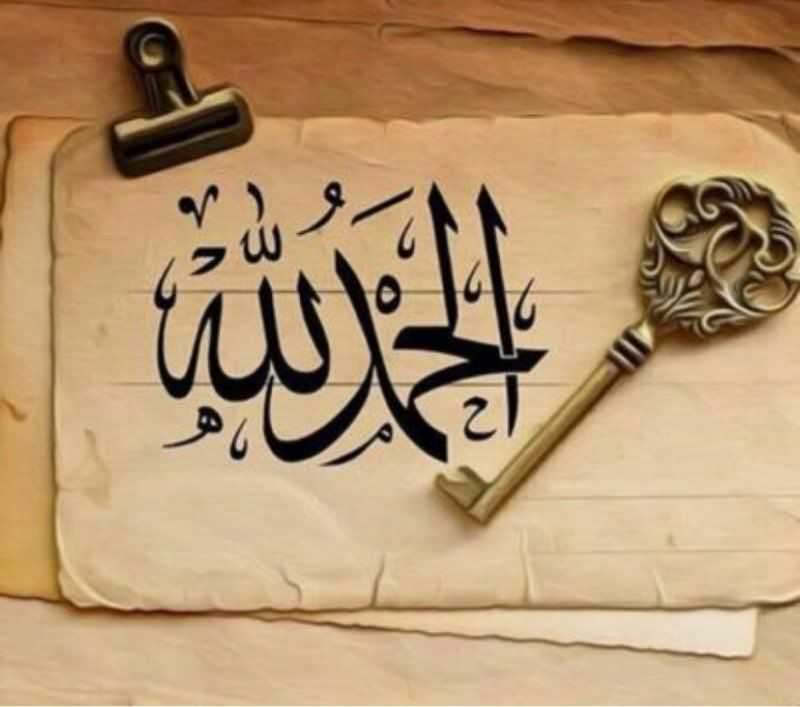 الحَمْدُ لِلّٰهِ